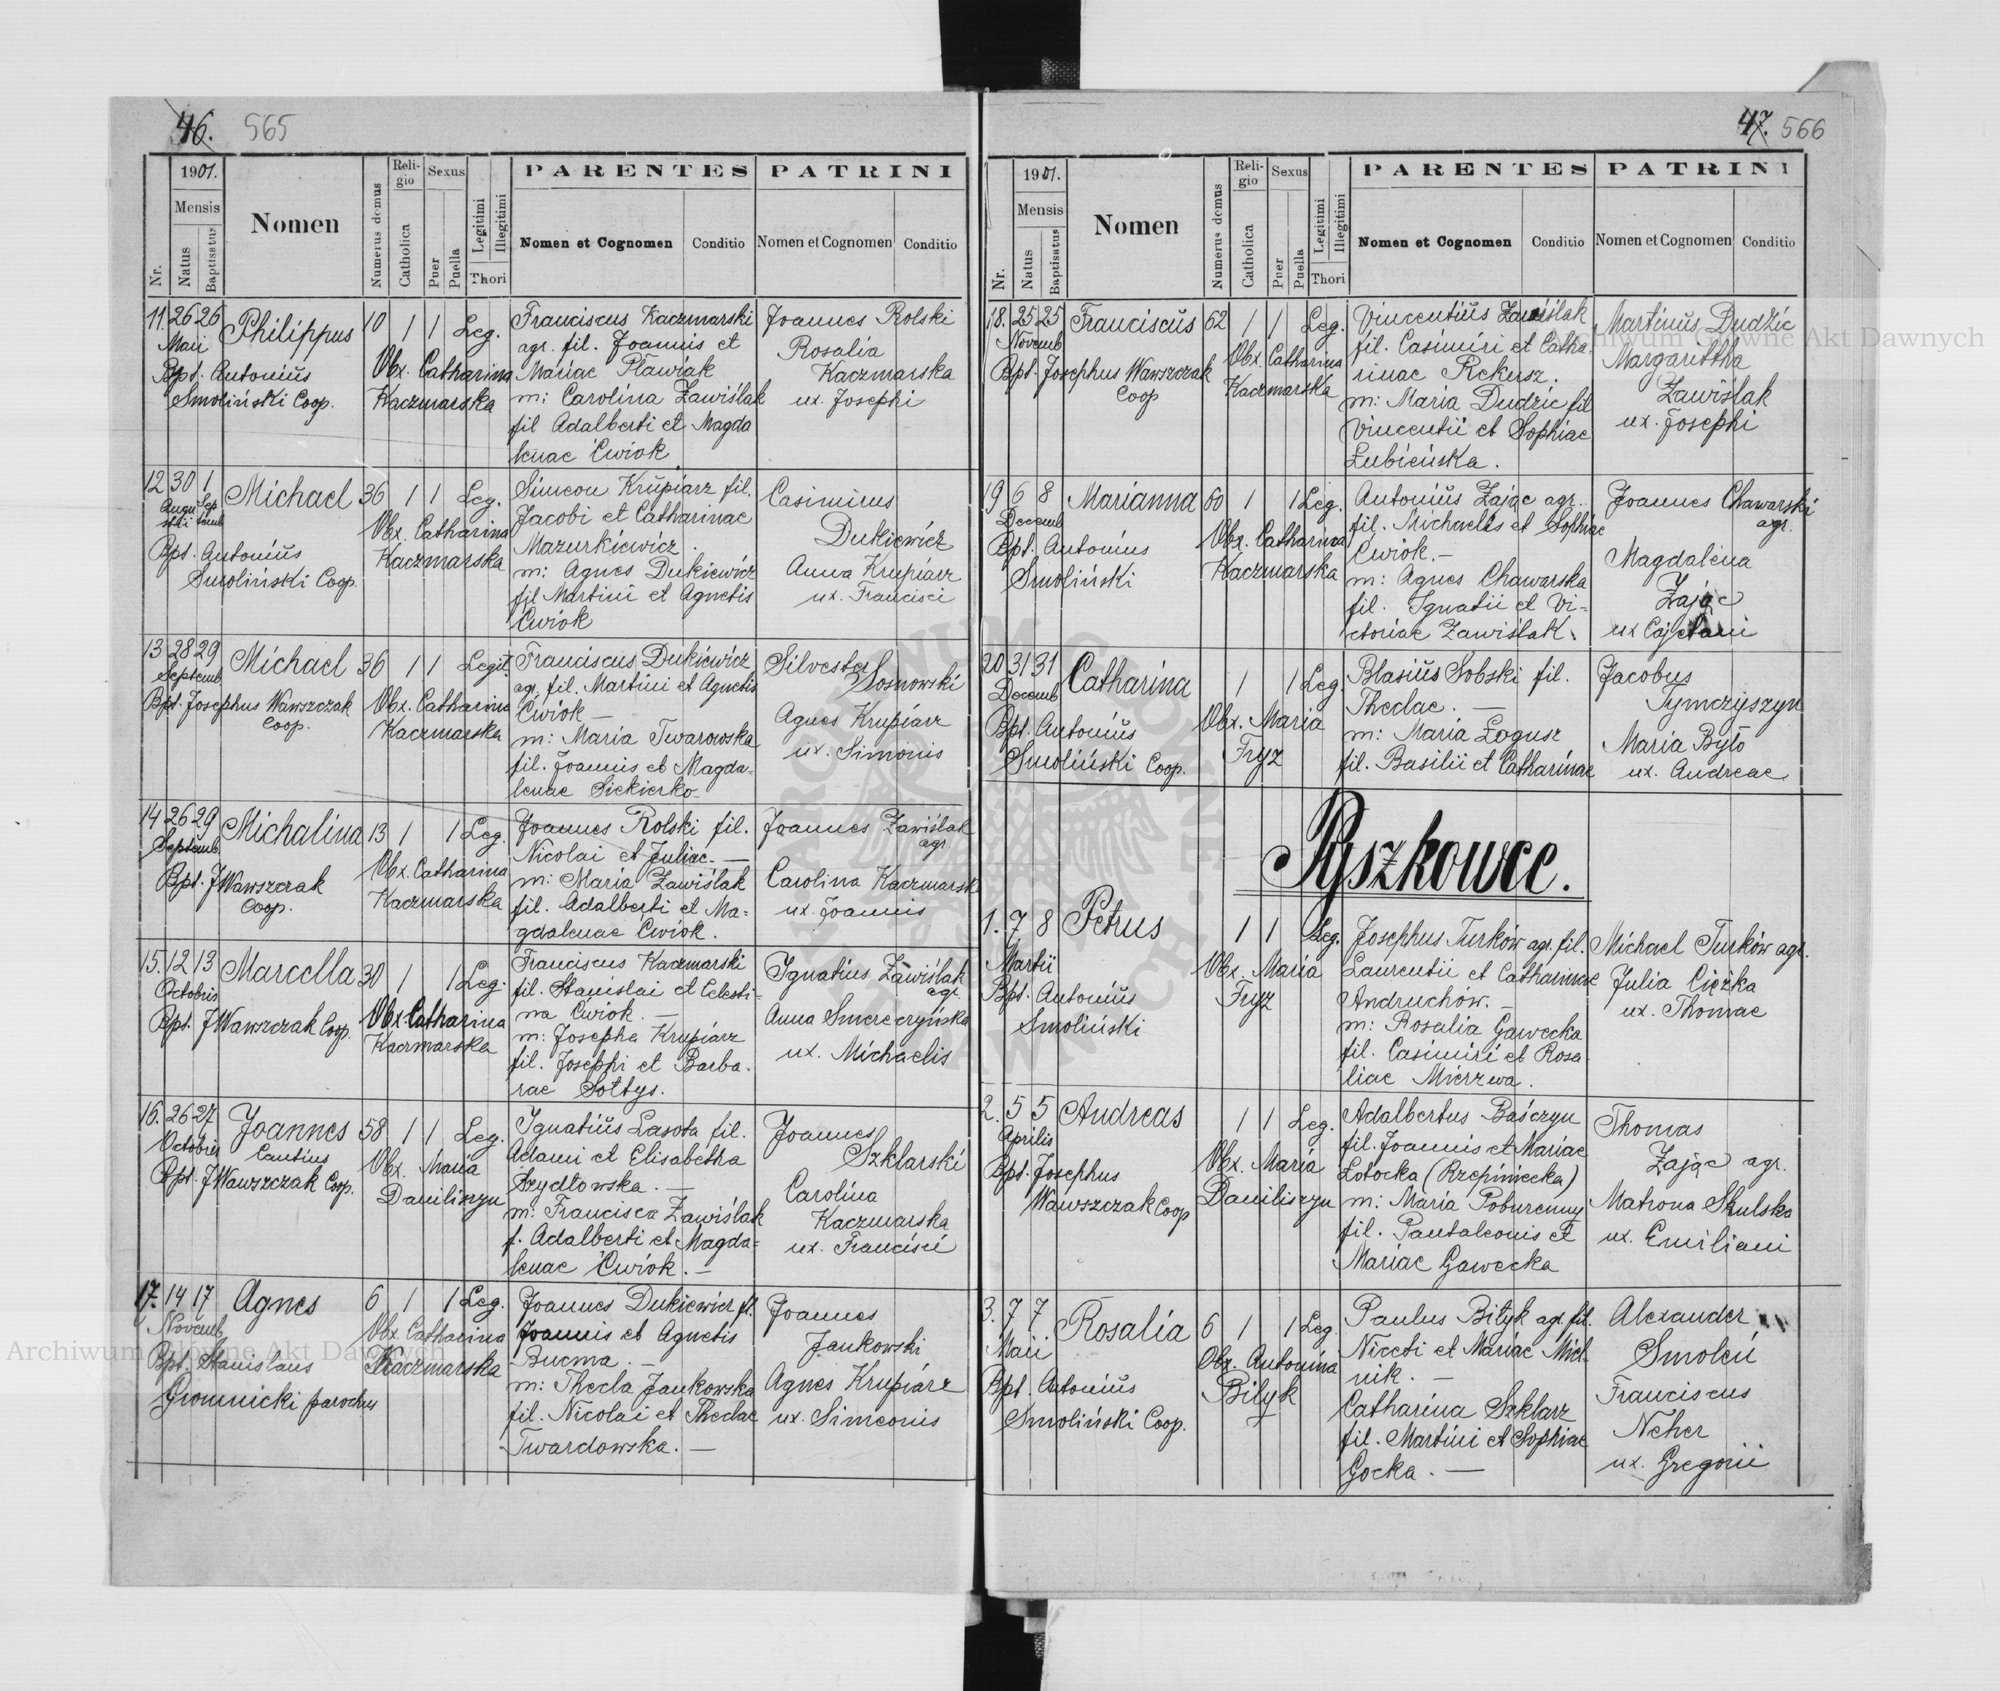 46. 565
1901.
Mensis
Nr.
Natus
Baptisatus
Nomen
Numerus domus
Religio
Catholica
Sexus
Puer
Puella
Legitimi
Illegitimi
Thori
PARENTES
Nomen et Cognomen
Conditio
PATRINI
Nomen et Cognomen
Conditio
11. 26 26 Philippus 10 1 1 Leg.
Maii
Bpt. Antonius
Smoliński Coop.
Obx. Catharina
Kaczmarska
Franciscus Kaczmarski
agr. fil. Joannis et
Mariae Pławiak
m: Carolina Zawiślak
fil Adalberti et Magda
lenae Ćwiok
Joannes Rolski
Rosalia
Kaczmarska
ux. Josephi
12 30 1 Michael 36 1 1 Leg.
Augusti Septemb
Bpt. Antonius
Smoliński Coop.
Obx. Catharina
Kaczmarska
Simeon Krupiarz fil.
Jacobi et Catharinae
Mazurkiewicz.
m: Agnes Dukiewicz
fil Martini et Agnetis
Ćwiok
Casimirus
Dukiewicz
Anna Krupiarz
ux. Francisci
13 28 29 Michael 36 1 1 Legit.
Septemb
Bpt. Josephus Wawszczak
Coop.
Obx. Catharina
Kaczmarska
Franciscus Dukiewicz
agr. fil. Martini et Agnetis
Ćwiok —
m: Maria Twarowska
fil. Joannis et Magda=
lenae Siekierko
Silvester
Sosnowski
Agnes Krupiarz
ux. Simonis
14 26 29 Michalina 13 1 1 Leg.
Septemb
Bpt. J Wawszczak
Coop.
Obx. Catharina
Kaczmarska
Joannes Rolski fil.
Nicolai et Juliae. —
m: Maria Zawiślak
fil. Adalberti et Ma=
gdalenae Ćwiok.
Joannes Zawiślak
agr.
Carolina Kaczmarsk
ux. Joannis
15. 12 13 Marcella 30 1 1 Leg.
Octobris
Bpt. J Wawszczak Coop.
Obx Catharina
Kaczmarska
Franciscus Kaczmarski
fil. Stanislai et Celesti-
na Ćwiok. —
m: Josepha Krupiarz
fil. Josephi et Barba.
rae Sołtys.
Ignatius Zawiślak
agr.
Anna Smereczyńska
ux. Michaelis
16. 26 27 Joannes 58 1 1 Leg.
Octobris Cantius
Bpt. J Wawszczak Coop.
Obx. Maria
Daniliszyn
Ignatius Lasota fil.
Adami et Elisabetha
Szydłowska. —
m: Francisca Zawiślak
f. Adalberti et Magda=
lenae Ćwiok. —
Joannes
Szklarski
Carolina
Kaczmarska
ux. Francisci
17. 14 17 Agnes 6 1 1 Leg.
Novemb
Bpt. Stanislaus
Gromnicki parochus
Obx. Catharina
Kaczmarska
Joannes Dukiewicz fil.
Joannis et Agnetis
Bucma. —
m: Thecla Jankowska
fil. Nicolai et Theclae
Twardowska. —
Joannes
Jankowski
Agnes Krupiarz
ux. Simeonis
47. 566
1901.
Mensis
Nr.
Natus
Baptisatus
Nomen
Numerus domus
Religio
Catholica
Sexus
Puer
Puella
Legitimi
Illegitimi
Thori
PARENTES
Nomen et Cognomen
Conditio
PATRINI
Nomen et Cognomen
Conditio
18. 25 25 Franciscus 62 1 1 Leg.
Novemb
Bpt. Josephus Wawszczak
Coop
Obx. Catharina
Kaczmarska
Vincentius Zawiślak
fil. Casimiri et Catha.
rinae Rekersz.
m: Maria Dudzic fil
Vincentii et Sophiae
Łubieńska.
Martinus Dudzic
Margarettha
Zawiślak
ux. Josephi
19 6 8 Marianna 60 1 1 Leg.
Decemb
Bpt. Antonius
Smoliński
Obx. Catharina
Kaczmarska
Antonius Zając agr.
fil. Michaelis et Sophiae
Ćwiok. —
m: Agnes Chawarska
fil. Ignatii et Vi=
ctoriae Zawiślak.
Joannes Chawarski
agr.
Magdalena
Zając
ux Cajetani
20 31 31 Catharina 1 1 Leg.
Decemb
Bpt. Antonius
Smoliński Coop.
Obx. Maria
Fryz
Blasius Sobski fil.
Theclae. —
m: Maria Łogusz
fil. Basilii et Catharinae
Jacobus
Tymczyszyn
Maria Było
ux. Andreae
Pyszkowce.
1. 7 8 Petrus 1 1 Leg.
Martii
Bpt. Antonius
Smoliński
Obx. Maria
Fryz
Josephus Turków agr. fil.
Laurentii et Catharinae
Andruchów. —
m: Rosalia Gawecka
fil. Casimiri et Rosa
liae Mierzwa.
Michael Turków agr.
Julia Ciężka
ux. Thomae
2. 5 5 Andreas 1 1 Leg.
Aprilis
Bpt. Josephus
Wawszczak Coop
Obx. Maria
Daniliszyn
Adalbertus Baśczyn
fil. Joannis et Mariae
Łotocka (Rzepiniecka)
m: Maria Poburenny
fil. Pantaleonis et
Mariae Gawecka
Thomas
Zając agr.
Matrona Skulska
ux. Emiliani
3. 7 7 Rosalia 6 1 1 Leg
Maii
Bpt. Antonius
Smoliński Coop.
Obx. Antonina
Bilyk
Paulus Bilyk agr. fil.
Niceti et Mariae Miel-
nik. —
Catharina Szklarz
fil. Martini et Sophiae
Gocka. —
Alexander
Smoleń
Franciscus
Neher
ux. Gregorii
Archiwum Główne Akt Dawnych
Archiwum Główne Akt Dawnych
ARCHIWUM GŁÓWNE AKT DAWNYCH